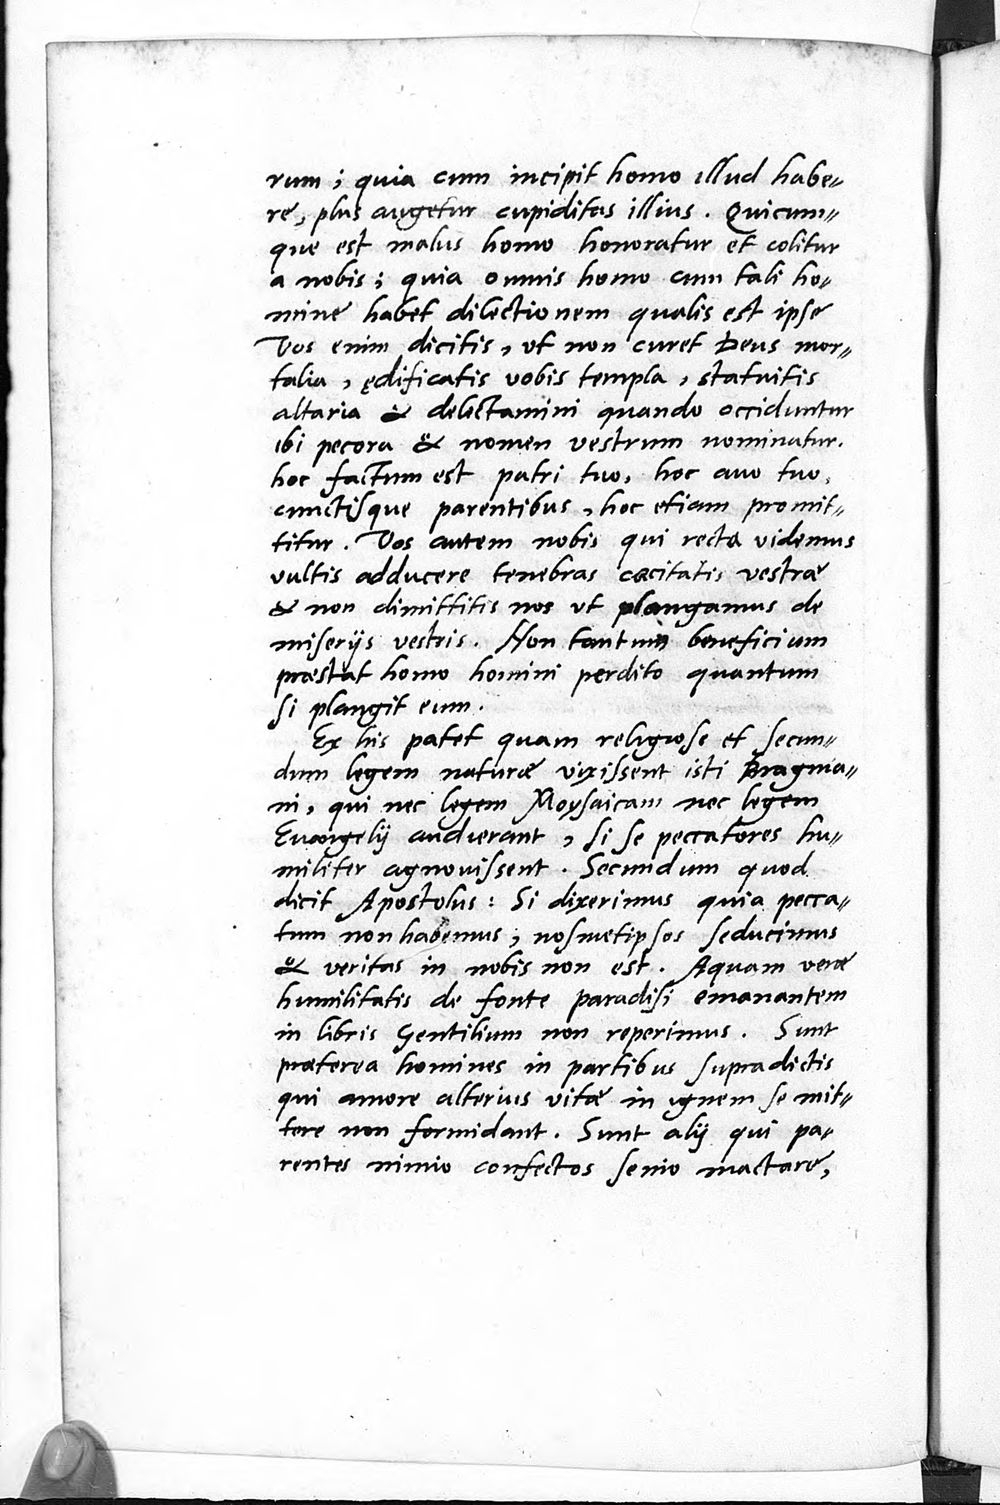 rum ; quia cum incipit homo illud habe=
re, plus augetur cupiditas illius . Quicum=
que est malus homo honoratur et colitur
a nobis ; quia omnis homo cum tali ho=
mine habet dilectionem qualis est ipse
Vos enim dicitis , ut non curet Deus mor=
talia , ędificatis vobis templa , statuitis
altaria & delectamini quando occiduntur
ibi pecora & nomen vestrum nominatur.
hoc factum est patri tuo, hoc auo tuo,
cunctisque parentibus , hoc etiam promit=
titur . Vos autem nobis qui recta videmus
vultis adducere tenebras cæcitatis vestræ
& non dimittitis nos ut plangamus de
miserijs vestris . Non tantum beneficium
præstat homo homini perdito quantum
si plangit eum .
Ex his patet quam religiose et secun=
dum legem naturæ vixissent isti Bragma=
ni, qui nec legem Moysaicam nec legem
Euangelij audierant , si se peccatores hu=
militer agnouissent . Secundum quod
dicit Apostolus : Si dixerimus quia pecca=
tum non habemus , nosmetipsos seducimus
& veritas in nobis non est . Aquam veræ
humilitatis de fonte paradisi emanantem
in libris Gentilium non reperimus . Sunt
præterea homines in partibus supradictis
qui amore alterius vitæ in ignem se mit=
tere non formidant . Sunt alij qui pa=
rentes nimio confectos senio mactare,